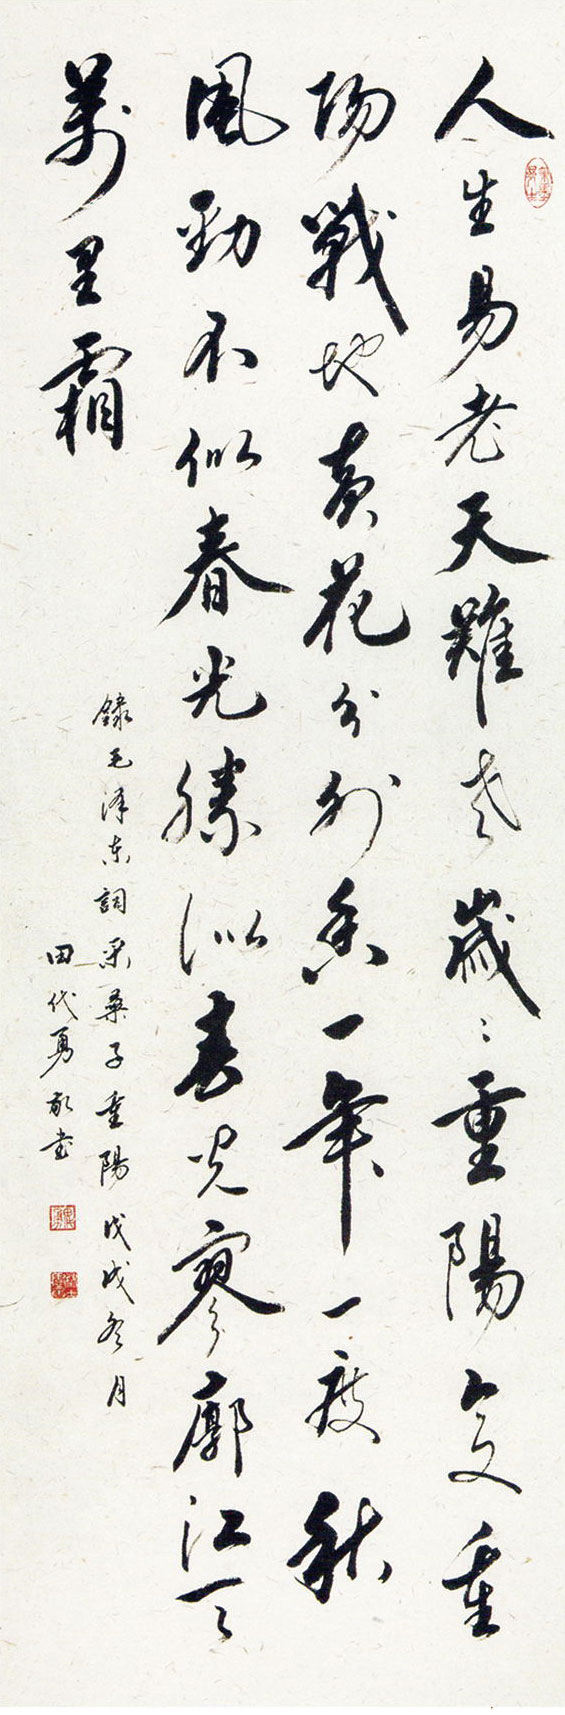 人生易老天難老歲〻重陽今又重
陽戰地黃花分外香一年一度秋
風勁不似春光勝似春光寥廓江天
萬里霜
錄毛泽东詞采桑子重陽戊戌冬月
田代勇敬书